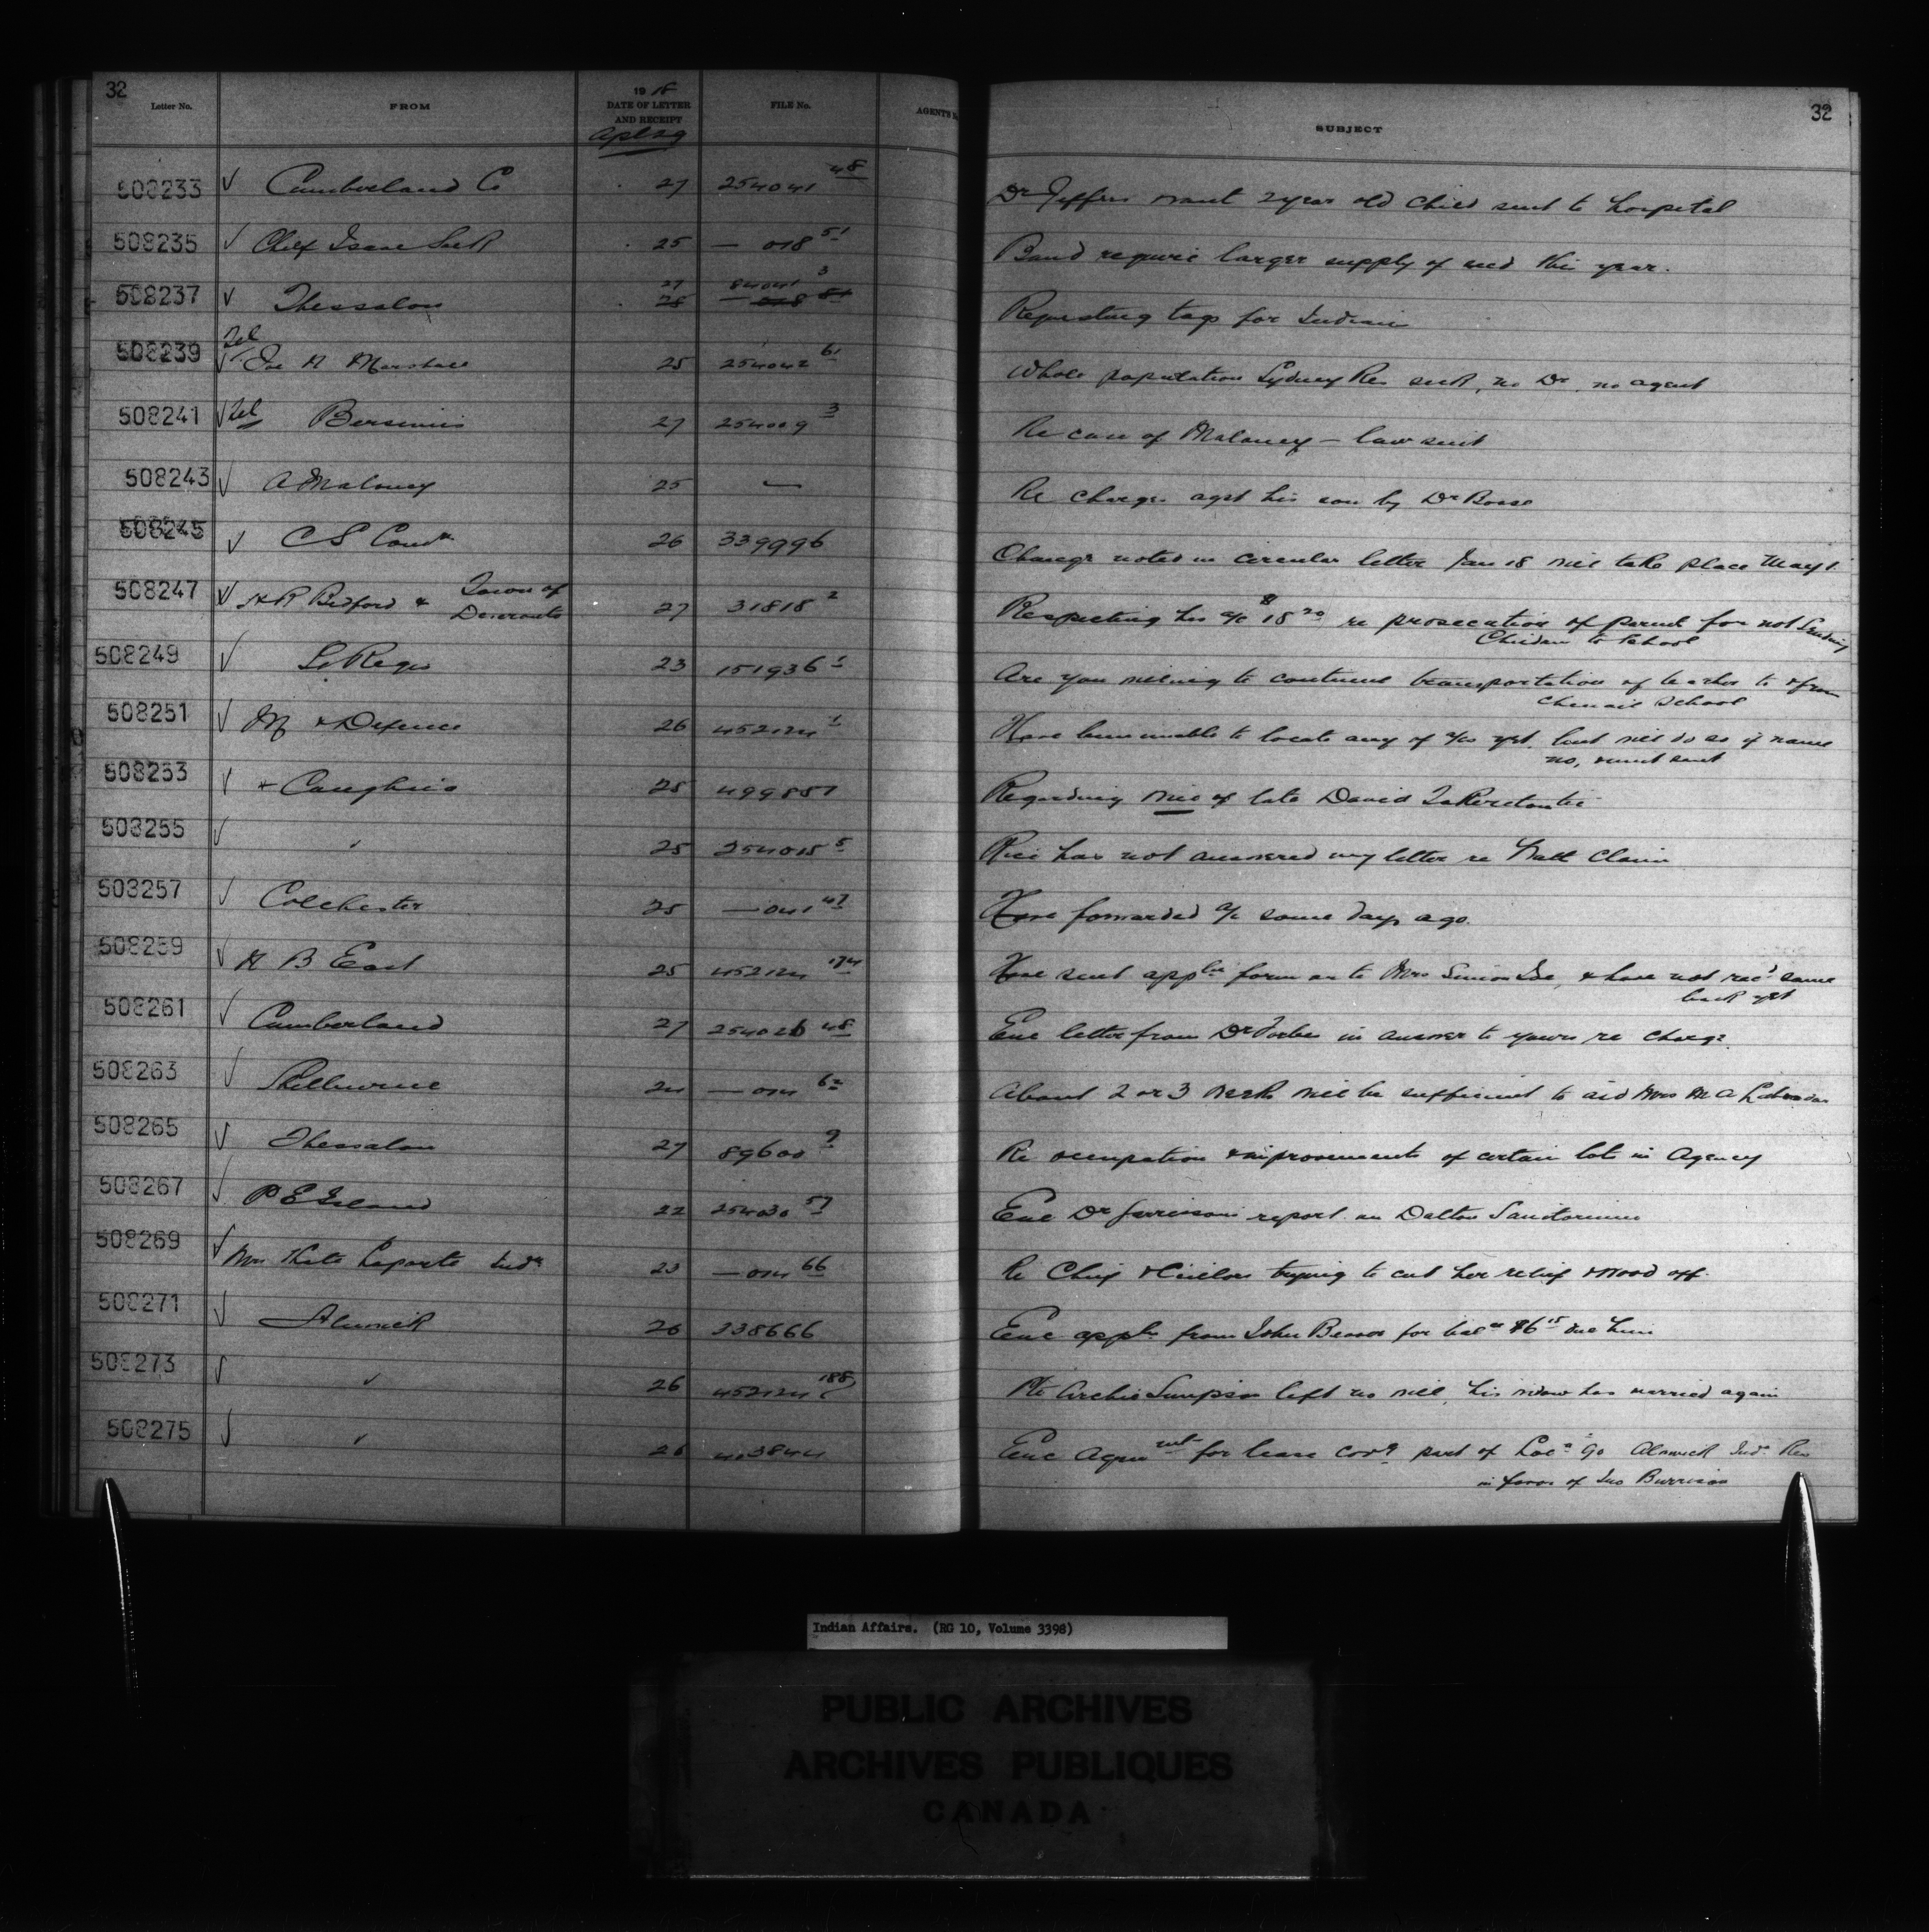 32
Letter No. FROM 1918 DATE OF LETTER AND RECEIPT FILE No. AGENT'S
SUBJECT 32
Apl 29
508233 √ Cumberland Co 27 254041 48 Dr Jeffers want 2 year old child sent to hospital
508235 √ Chief Isaac Sack 25 — 018 51 Band require larger supply of seed this year.
508237 √ Thessalon 27 84041 3 Requesting tags for Indian
508239 Tel √ Joe H Marshall 25 254042 61 Whole population Sydney Res sick, no Dr, no agent
508241 √ Tel Bersimis 27 254009 3 Re case of Maloney — law suit
508243 √ A Maloney 25 — Re charges agst his son by Dr Bosse
508245 √ C S Comn 26 339996 Change noted in circular letter Jan 18 will take place May 1.
508247 √ H R Bedford & Town of Deseronto 27 31818 2 Respecting his a/c $18 20 re prosecution of parent for not sending
Children to School
508249 √ St Regis 23 151936 1 Are you willing to continue transportation of teacher to & from
Chenail School
508251 √ M & Defence 26 452124 1 Have been unable to locate any of a/cs yet, but will do so if name
no, & unit sent
508253 √ Caughna 25 499857 Regarding will of late David
508255 √ " 25 254015 5 Rice has not answered my letter re Hall Claim
508257 √ Colchester 25 — 041 47 Have forwarded a/c some days ago.
508259 √ H B East 25 452124 174 Have sent appln form on to Mrs Simon Joe, & have not recd same
back yet
508261 √ Cumberland 27 254026 48 Enc letter from Dr Forbes in answer to yours re charge
508263 √ Shelburne 24 — 014 62 About 2 or 3 weeks will be sufficient to aid Mrs M A Labrador
508265 √ Thessalon 27 89600 9 Re occupation & improvements of certain lots in Agency
508267 √ P E Island 22 254030 57 Enc Dr report on Dalton Sanitorium
508269 √ Mrs Kate Laporte Indn 23 — 014 66 Re Chief & Cuilors trying to cut her relief & wood off.
508271 √ Alnwick 26 338666 Enc appln from John Beaver for bal of $6 15 due him
508273 √ " 26 452124 188 Pte Archie Simpson left no will, his widow has married again
508275 √ " 26 403844 Enc Agreemt for lease covg part of Loc n 90 Alnwick Indn Res
in favor of Jno Burrison
Indian Affairs. (RG 10, Volume 3398)
PUBLIC ARCHIVES
ARCHIVES PUBLIQUES
CANADA